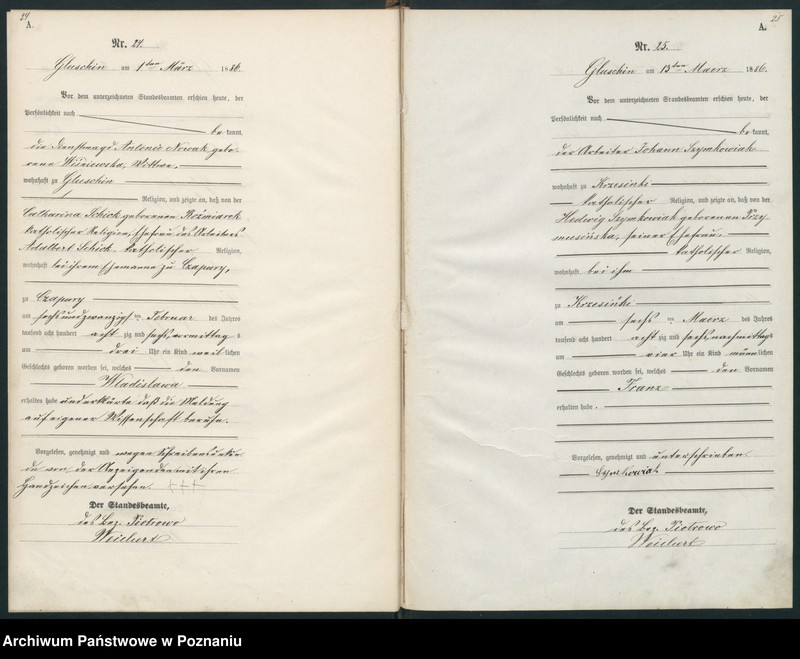 24
A.
Nr. 24.
Gluschin am 1ten März 1886.
Vor dem unterzeichneten Standesbeamten erschien heute, der
Persönlichkeit nach
be kannt,
die Dienstmagd Antonie Nowak gebo-
rene Wiśniewska, Wittwe,
wohnhaft zu Gluschin
Religion, und zeigte an, daß von der
Catharina Schick geborenen Roźmiarek
katholischer Religion, Ehefrau des Arbeiters
Adalbert Schick katholischer Religion,
wohnhaft bei ihrem Ehemanne zu Czapury,
zu Czapury
am sechsundzwanzigsten Februar des Jahres
tausend acht hundert acht zig und sechs, vormittags
um drei Uhr ein Kind weiblichen
Geschlechts geboren worden sei, welches den Vornamen
Wladislawa
erhalten habe und erklärte daß die Meldung
auf eigener Wissenschaft beruhe.
Vorgelesen, genehmigt und wegen Schreibensunkun-
de von der Anzeigenden mit ihrem
Handzeichen versehen. +++
Der Standesbeamte,
des Bez. Piotrowo
Weichert
25
A.
Nr. 25.
Gluschin am 13ten Maerz 1886.
Vor dem unterzeichneten Standesbeamten erschien heute, der
Persönlichkeit nach
be kannt,
der Arbeiter Johann Szymkowiak
wohnhaft zu Krzesinki
katholischer Religion, und zeigte an, daß von der
Hedwig Szymkowiak geborenen
seiner Ehefrau,
katholischer Religion,
wohnhaft bei ihm
zu Krzesinki
am sechsten Maerz des Jahres
tausend acht hundert acht zig und sechs, nachmittags
um vier Uhr ein Kind männlichen
Geschlechts geboren worden sei, welches den Vornamen
Franz
erhalten habe.
Vorgelesen, genehmigt und unterschrieben
Szymkowiak
Der Standesbeamte,
des Bez. Piotrowo
Weichert
Archiwum Państwowe w Poznaniu